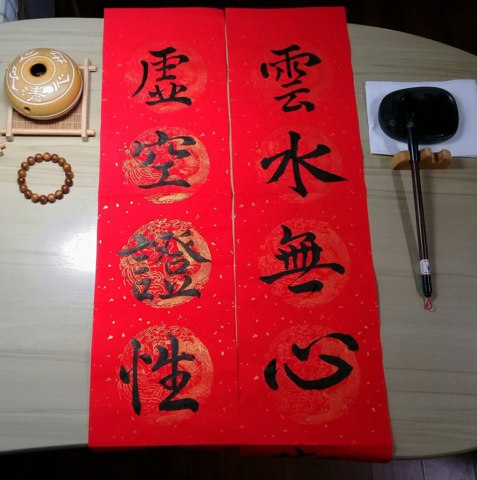 雲水無心
虛空證性
清